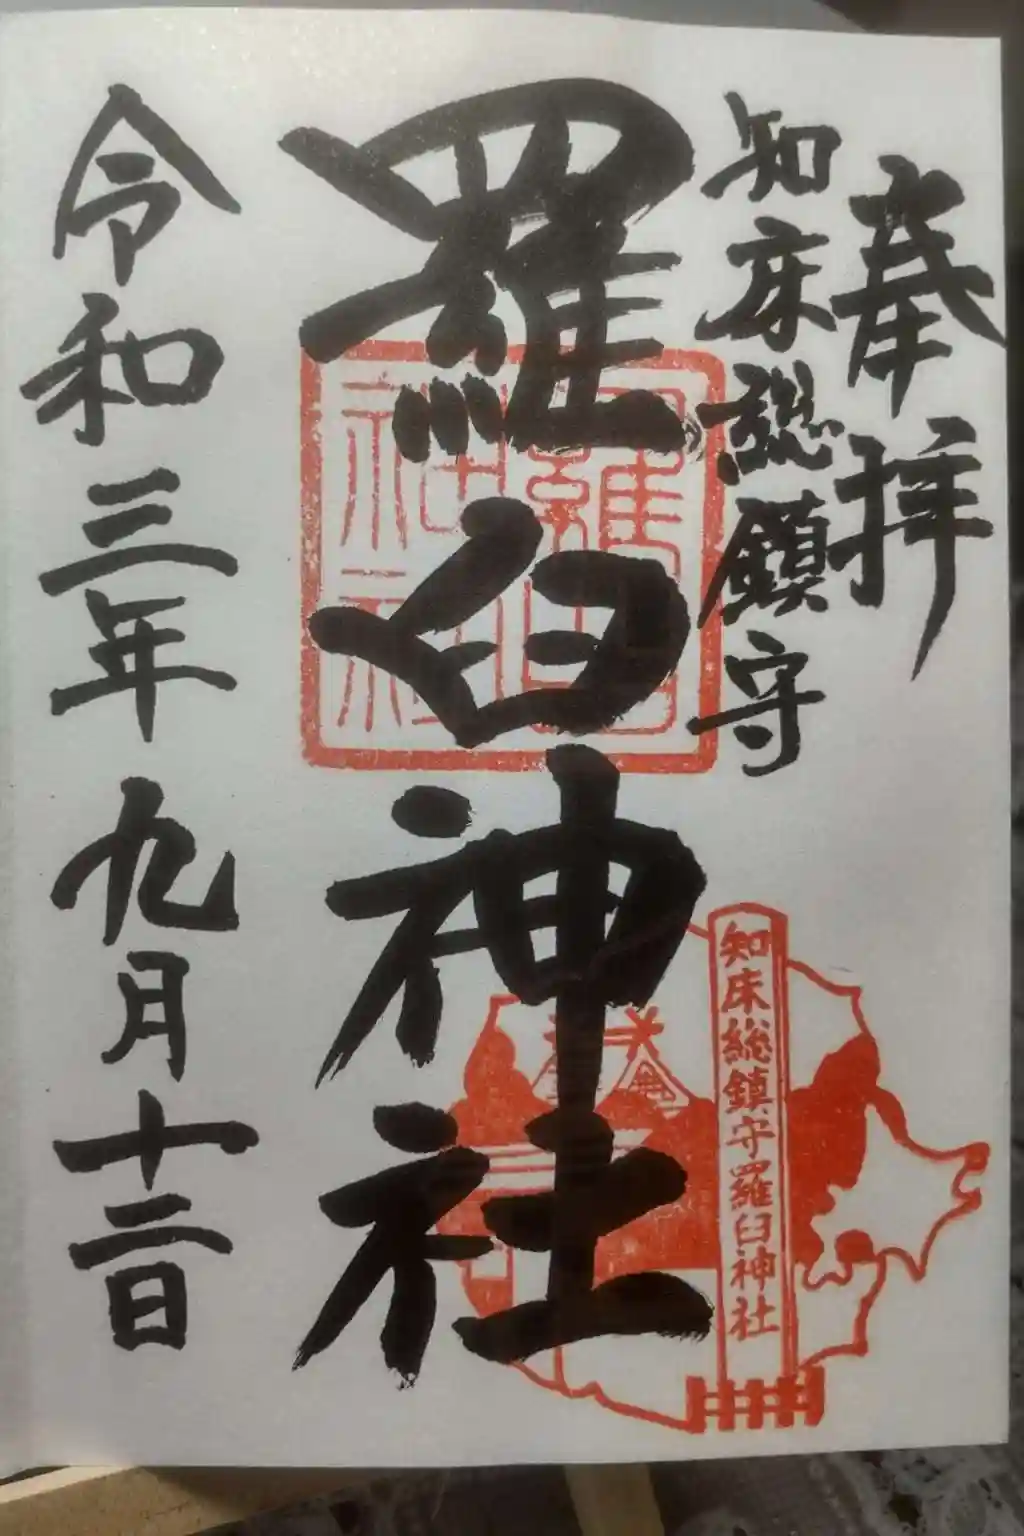 奉拝
知床総鎮守
羅臼神社
令和三年九月十二日
羅臼神社
知床総鎮守羅臼神社